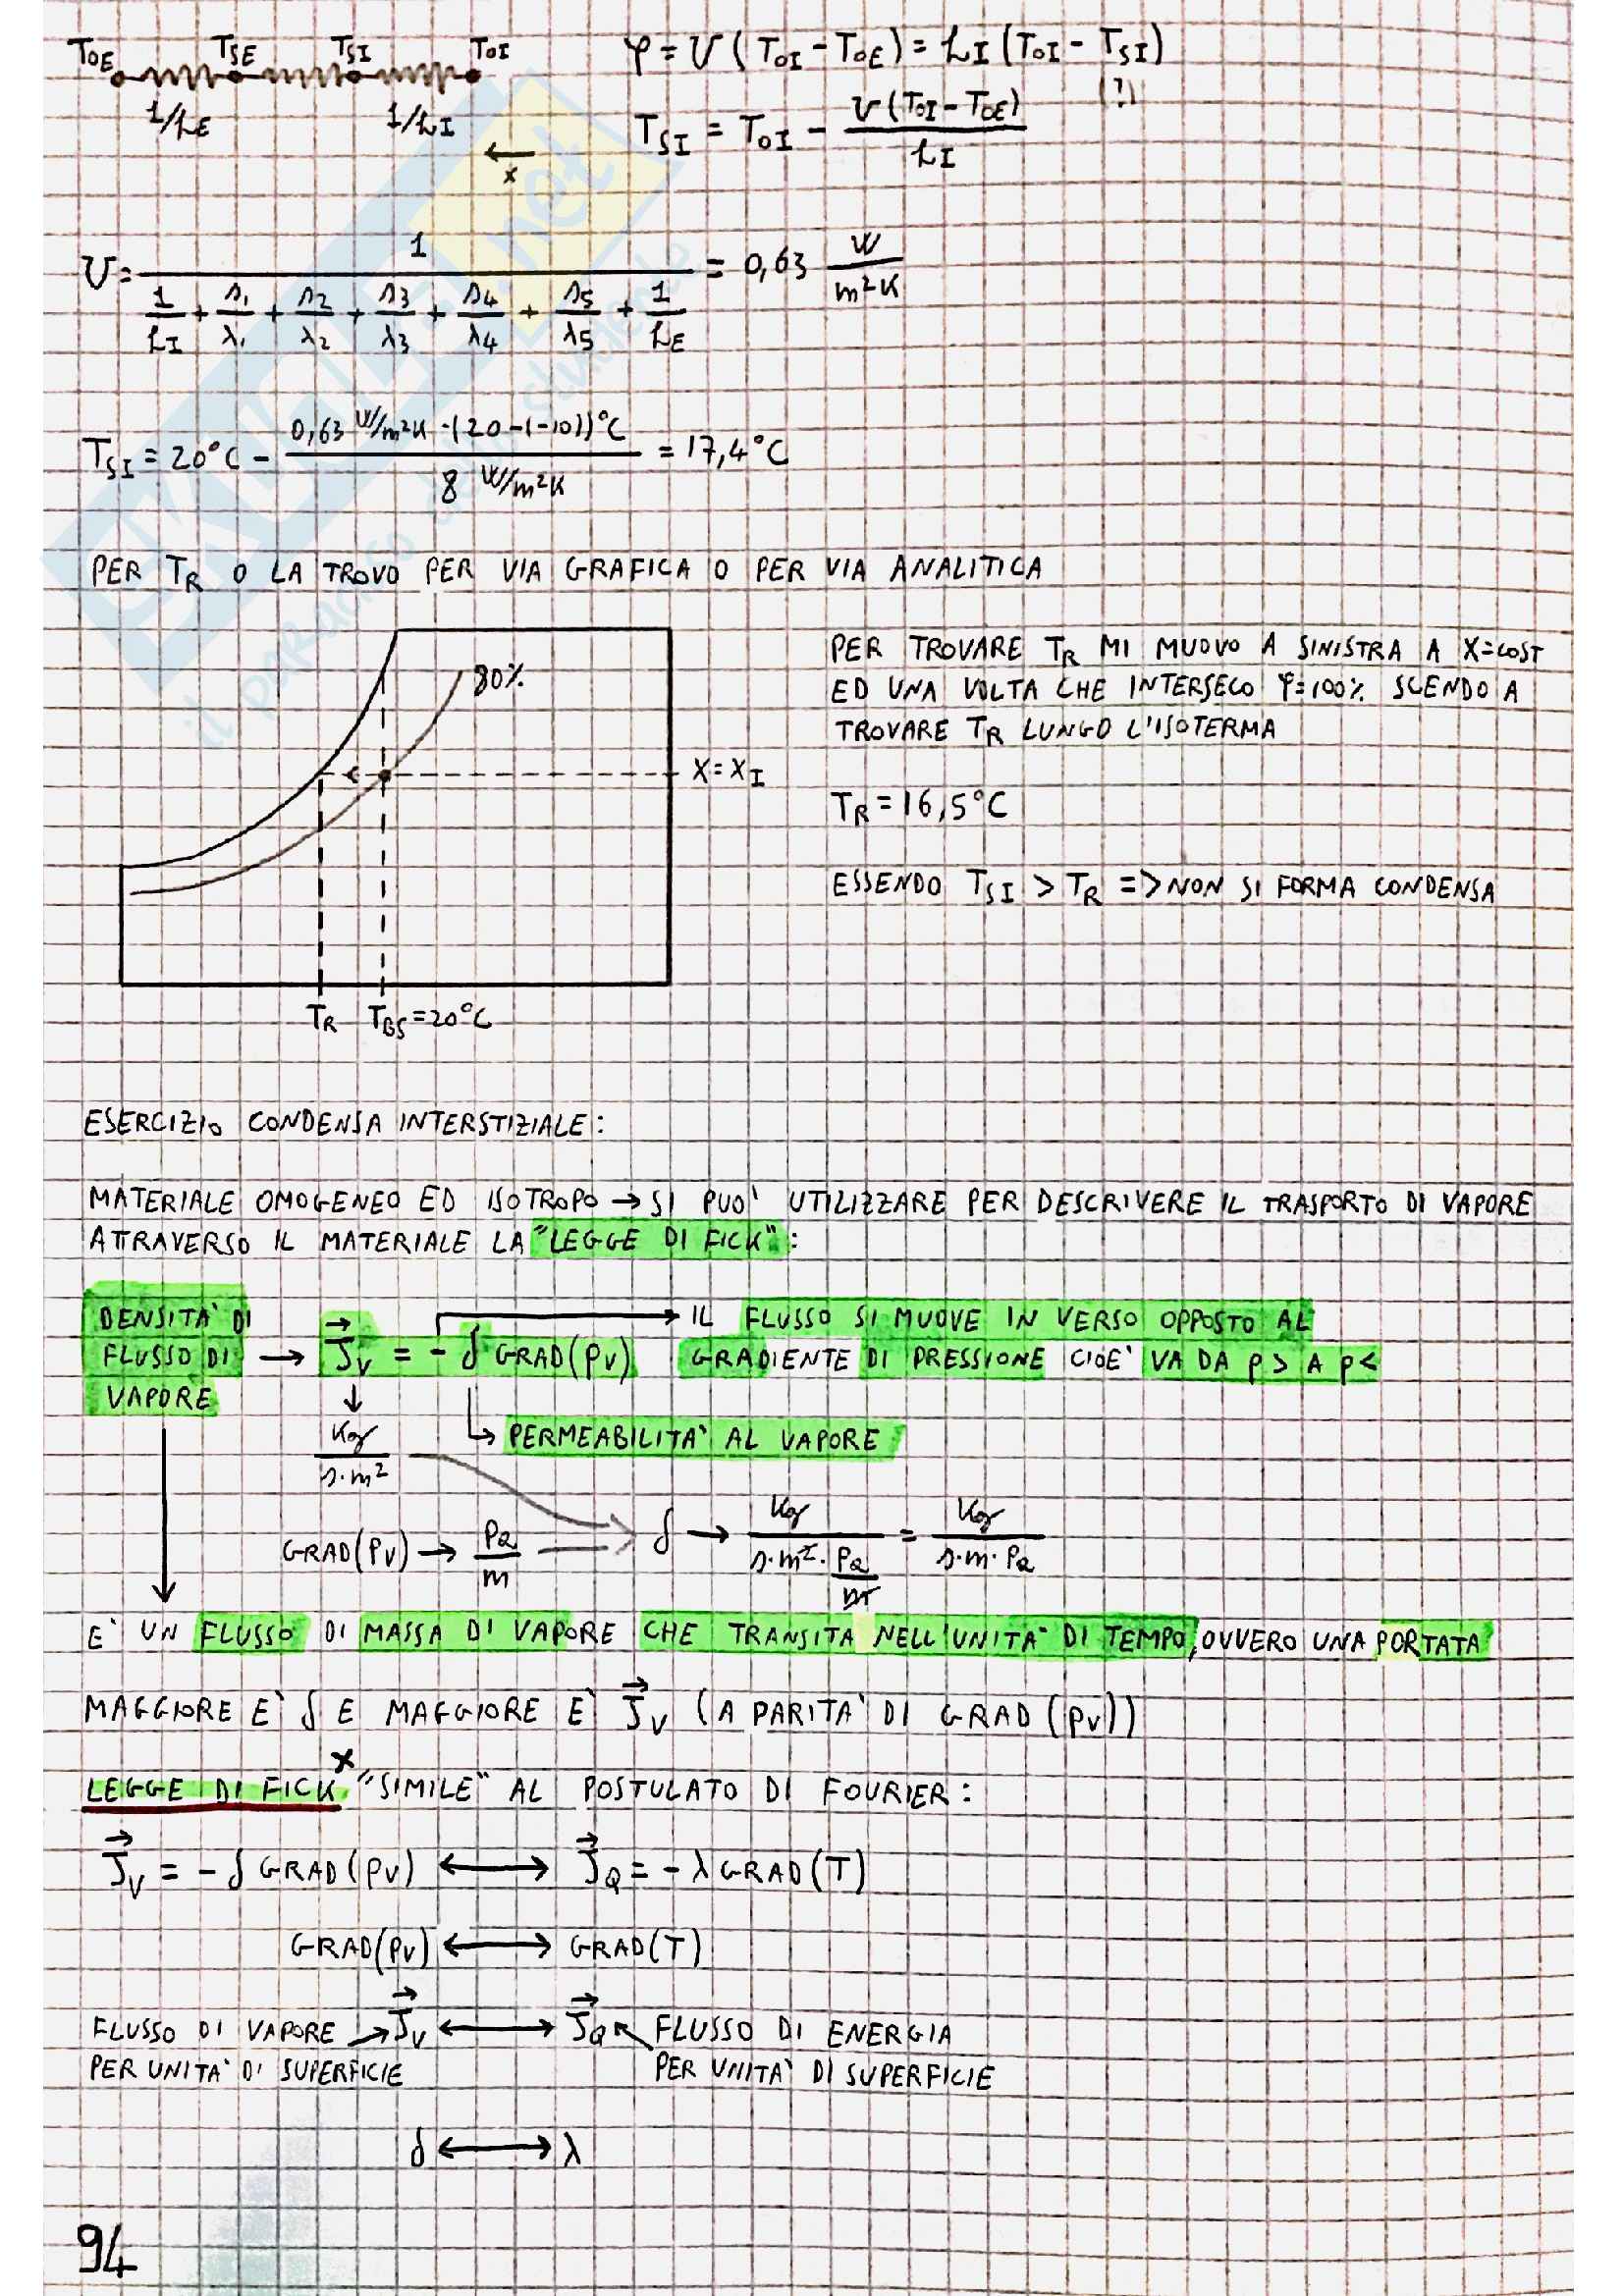 T∞E TSE TSI T∞I
1/hE 1/hI
← x
φ = U (T∞I - T∞E) = hI (T∞I - TSI)
(?)
TSI = T∞I - U (T∞I - T∞E) / hI
U = 1 / (1/hI + s1/λ1 + s2/λ2 + s3/λ3 + s4/λ4 + s5/λ5 + 1/hE) = 0,63 W/m²K
TSI = 20°C - 0,63 W/m²K · (20-(-10))°C / 8 W/m²K = 17,4°C
PER TR O LA TROVO PER VIA GRAFICA O PER VIA ANALITICA
80%
X = XI
TR TBS = 20°C
PER TROVARE TR MI MUOVO A SINISTRA A X=COST
ED UNA VOLTA CHE INTERSECO φ=100% SCENDO A
TROVARE TR LUNGO L'ISOTERMA
TR = 16,5°C
ESSENDO TSI > TR => NON SI FORMA CONDENSA
ESERCIZIO CONDENSA INTERSTIZIALE:
MATERIALE OMOGENEO ED ISOTROPO → SI PUO' UTILIZZARE PER DESCRIVERE IL TRASPORTO DI VAPORE
ATTRAVERSO IL MATERIALE LA "LEGGE DI FICK":
DENSITA' DI
FLUSSO DI
VAPORE
→ J⃗V = - δ GRAD(PV)
→ IL FLUSSO SI MUOVE IN VERSO OPPOSTO AL
GRADIENTE DI PRESSIONE CIOE' VA DA P> A P<
↳ PERMEABILITA' AL VAPORE
Kg / s·m²
GRAD(PV) → Pa/m
δ → Kg / (s·m²·Pa/m) = Kg / s·m·Pa
E' UN FLUSSO DI MASSA DI VAPORE CHE TRANSITA NELL'UNITA' DI TEMPO, OVVERO UNA PORTATA
MAGGIORE E' δ E MAGGIORE E' J⃗V (A PARITA' DI GRAD (PV))
LEGGE DI FICK* "SIMILE" AL POSTULATO DI FOURIER:
J⃗V = - δ GRAD(PV) ↔ J⃗Q = - λ GRAD(T)
GRAD(PV) ↔ GRAD(T)
FLUSSO DI VAPORE → J⃗V ↔ J⃗Q ↖ FLUSSO DI ENERGIA
PER UNITA' DI SUPERFICIE PER UNITA' DI SUPERFICIE
δ ↔ λ
94